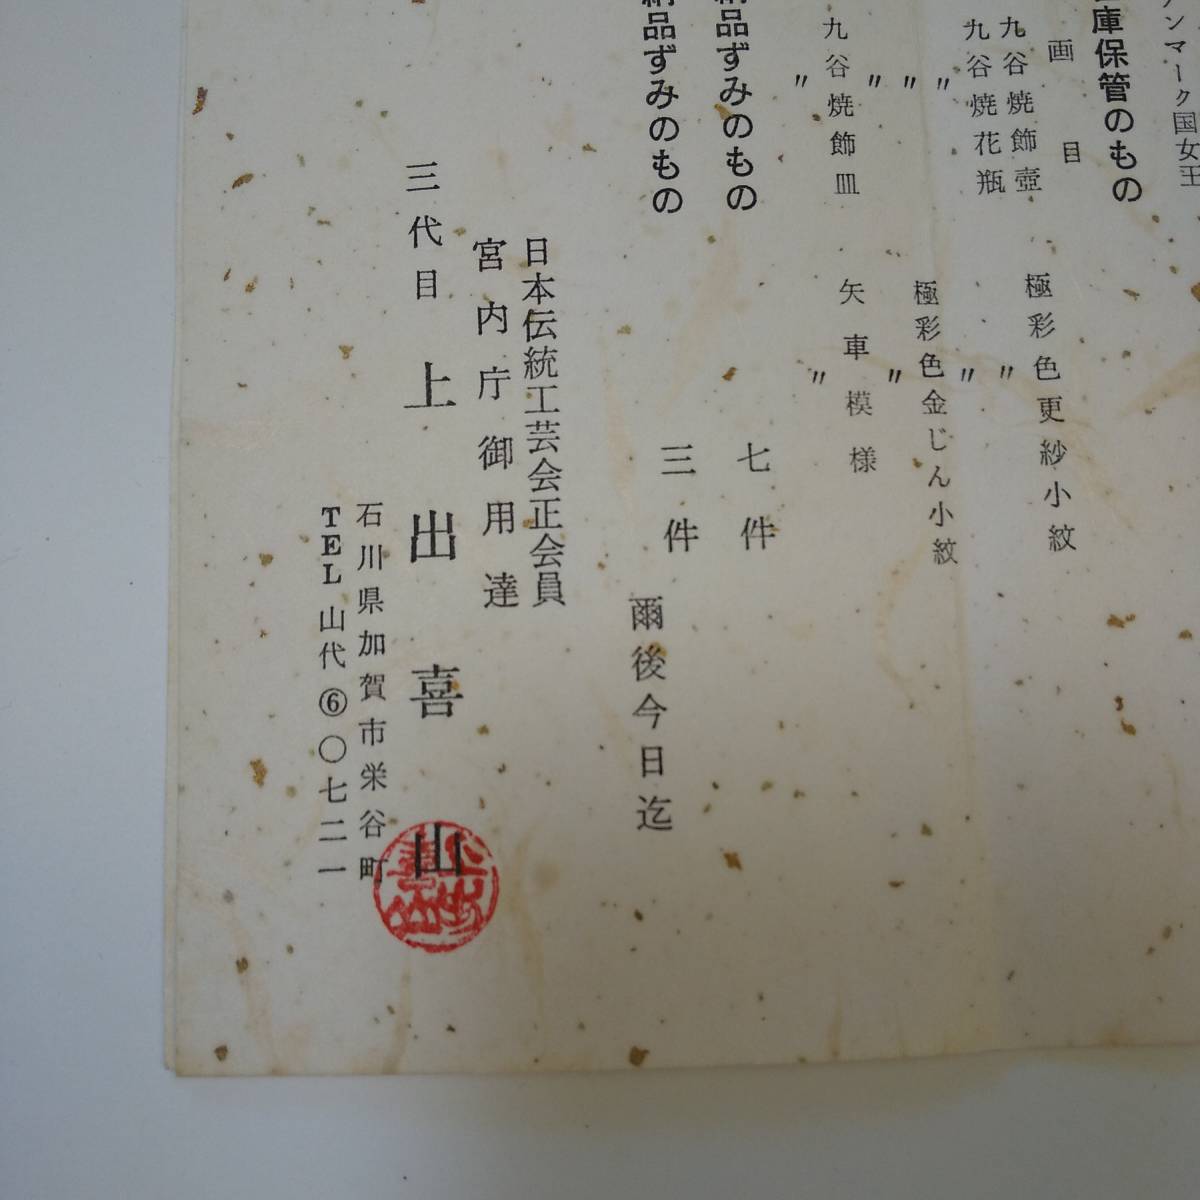 ンマーク国女王
庫保管のもの
画目
九谷焼飾壺 極彩色更紗小紋
九谷焼花瓶 〃
〃 〃
〃 極彩色金じん小紋
〃 〃
九谷焼飾皿 矢車模様
〃 〃
品ずみのもの 七件
納品ずみのもの 三件
爾後今日迄
日本伝統工芸会正会員
宮内庁御用達
三代目 上出喜山
石川県加賀市栄谷町
TEL山代⑥〇七二一